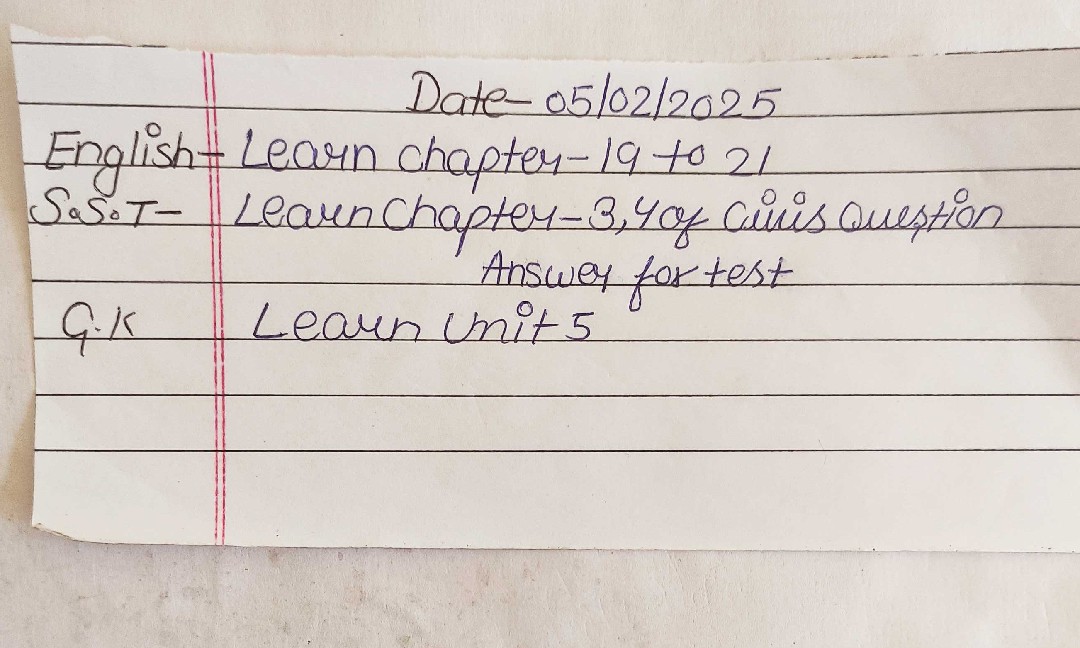 Date- 05/02/2025
English- Learn chapter-19 to 21
S.S.T- Learn Chapter-3,4 of Civis Question
Answer for test
G.K Learn Unit 5